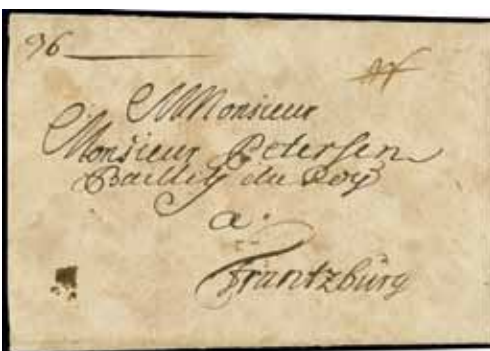 96
A Monsieur
Monsieur Petersen
Bailliy du Roy
a.
Frantzburg